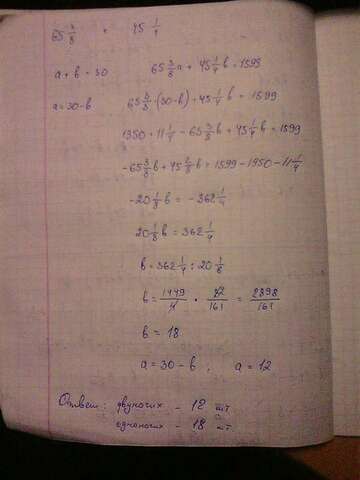 65 3/8 45 1/4
a + b = 30 65 3/8 a + 45 1/4 b = 1599
a = 30 - b 65 3/8 · (30 - b) + 45 1/4 b = 1599
1950 + 11 1/4 - 65 3/8 b + 45 1/4 b = 1599
-65 3/8 b + 45 2/8 b = 1599 - 1950 - 11 1/4
-20 1/8 b = -362 1/4
20 1/8 b = 362 1/4
b = 362 1/4 : 20 1/8
b = 1449/4 · 8 2/161 = 2898/161
b = 18
a = 30 - b , a = 12
Ответ: двуногих - 12 шт
одноногих - 18 шт